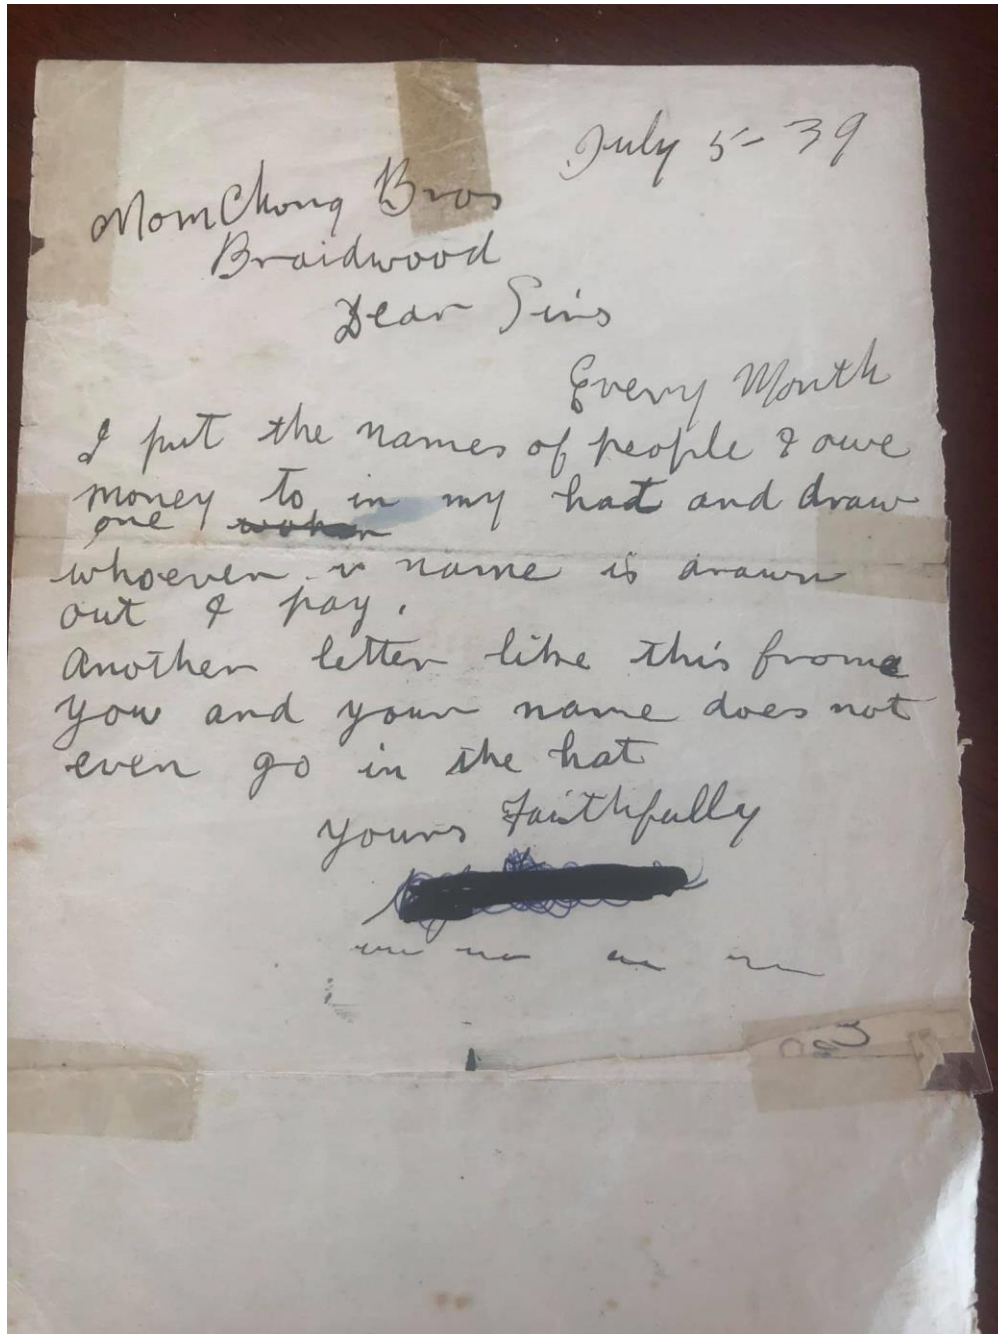 July 5 - 39
Nomchong Bros
Braidwood
Dear Sirs
Every Month
I put the names of people I owe
money to in my hat and draw
one
whoever name is drawn
out I pay.
Another letter like this from
you and your name does not
even go in the hat
Yours Faithfully